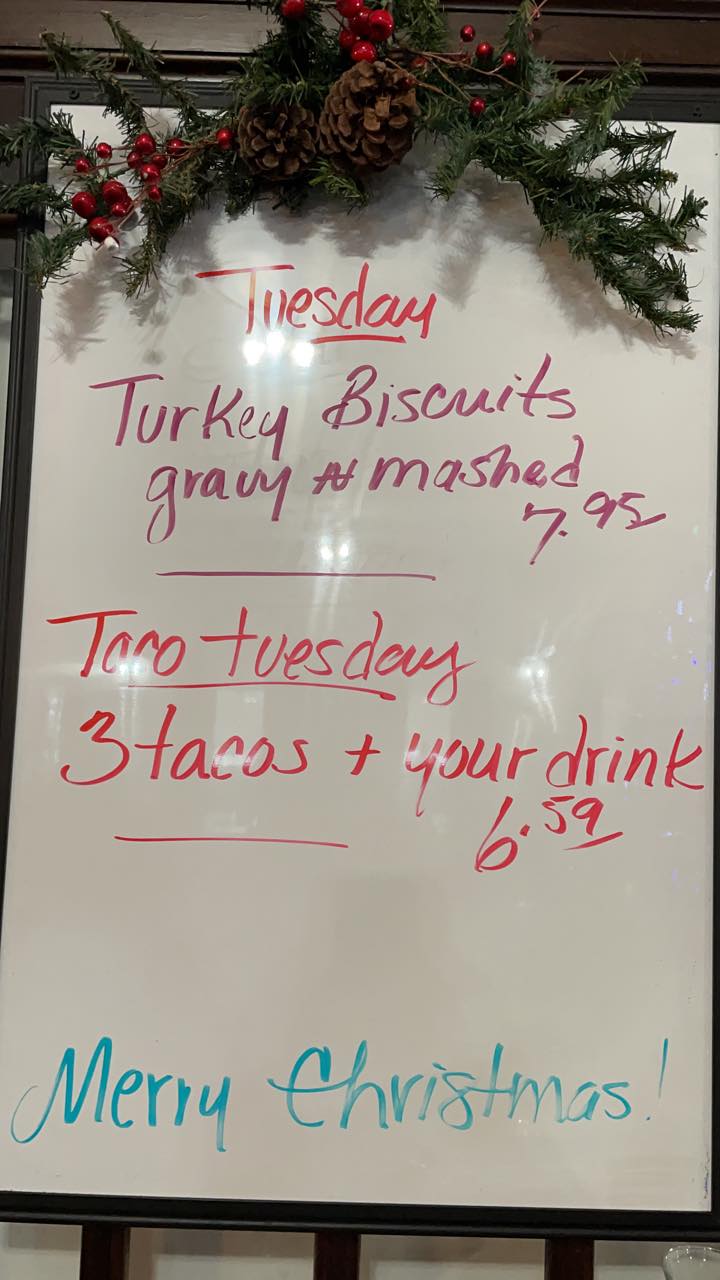 Tuesday
Turkey Biscuits
gravy N mashed
7.95
Taco tuesday
3 tacos + your drink
6.59
Merry Christmas!